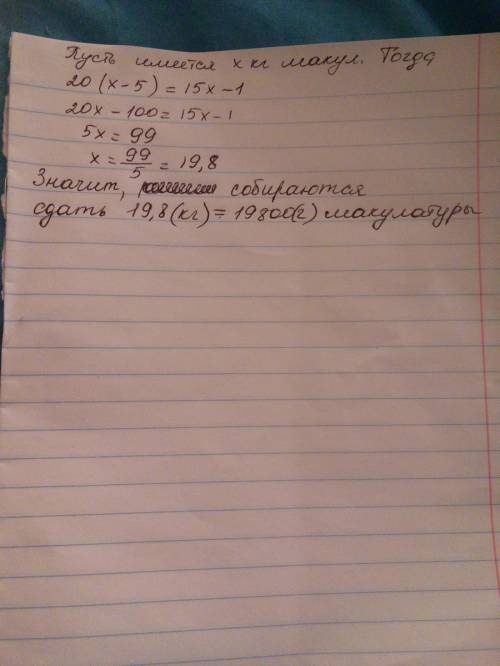 Пусть имеется x кг макул. Тогда
20(x-5)=15x-1
20x-100=15x-1
5x=99
x=99/5=19,8
Значит, собираются
сдать 19,8(кг)=19800(г) макулатуры